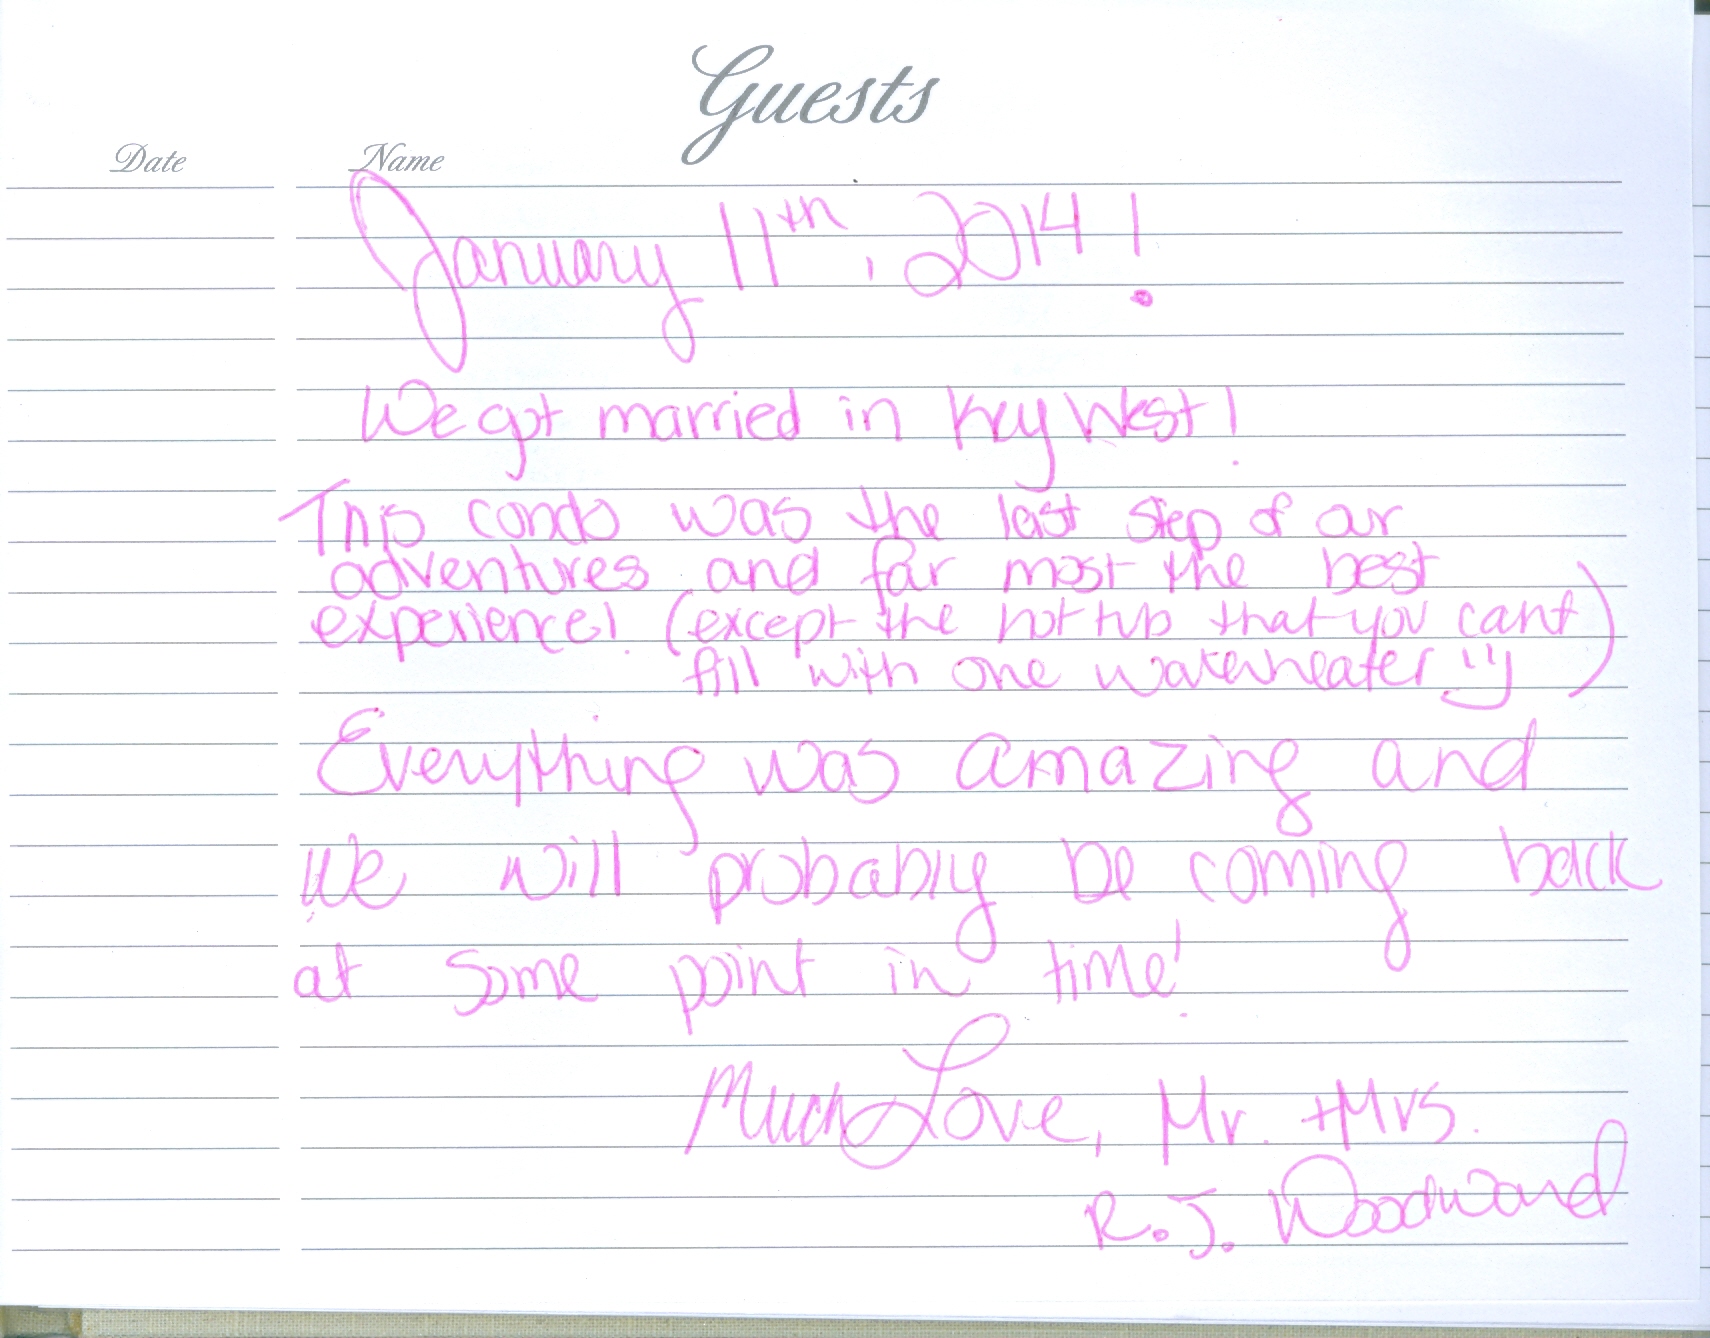 Guests
Date Name
January 11th, 2014!
We got married in Key West!
This condo was the last step of our
adventures and far most the best
experience! (except the hot tub that you cant
fill with one waterheater :))
Everything was amazing and
We will probably be coming back
at some point in time!
Much Love, Mr. + Mrs.
R.J. Woodward